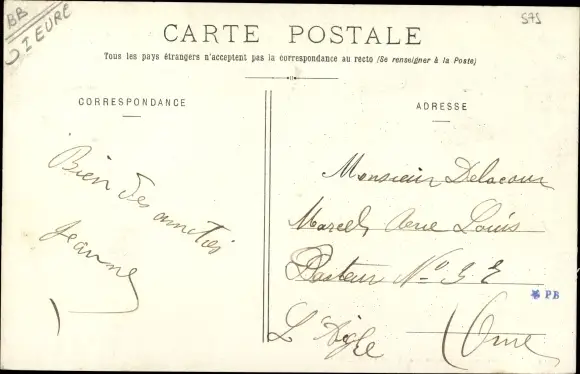 BB
DIEURE
575
CARTE POSTALE
Tous les pays étrangers n'acceptent pas la correspondance au recto (Se renseigner à la Poste)
CORRESPONDANCE
Bien des amitiés
Jeanne
ADRESSE
Monsieur Delacour
Marcel, Rue Louis
Pasteur No 3 E
L'Aigle (Orne
PB